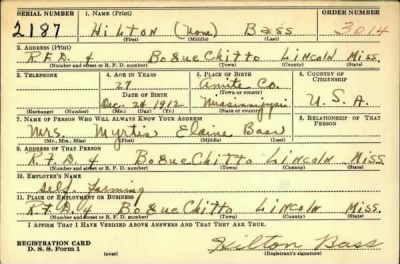 SERIAL NUMBER 1. NAME (Print) ORDER NUMBER
2187 Hilton (None) Bass 3014
(First) (Middle) (Last)
2. ADDRESS (Print)
R.F.D. 4 Bogue Chitto Lincoln Miss.
(Number and street or R. F. D. number) (Town) (County) (State)
3. TELEPHONE 4. AGE IN YEARS 5. PLACE OF BIRTH 6. COUNTRY OF CITIZENSHIP
27 Amite Co.
DATE OF BIRTH (Town or county)
Dec. 28, 1912 Mississippi U.S.A.
(Exchange) (Number) (Mo.) (Day) (Yr.) (State or country)
7. NAME OF PERSON WHO WILL ALWAYS KNOW YOUR ADDRESS 8. RELATIONSHIP OF THAT PERSON
Mrs. Myrtis Elaine Bass
(Mr., Mrs., Miss) (First) (Middle) (Last)
9. ADDRESS OF THAT PERSON
R.F.D. 4 Bogue Chitto Lincoln Miss
(Number and street or R. F. D. number) (Town) (County) (State)
10. EMPLOYER'S NAME
Self. Farming
11. PLACE OF EMPLOYMENT OR BUSINESS
R.F.D. 4 Bogue Chitto Lincoln Miss.
(Number and street or R. F. D. number) (Town) (County) (State)
I AFFIRM THAT I HAVE VERIFIED ABOVE ANSWERS AND THAT THEY ARE TRUE.
REGISTRATION CARD
D. S. S. Form 1 Hilton Bass
(over) (Registrant's signature)